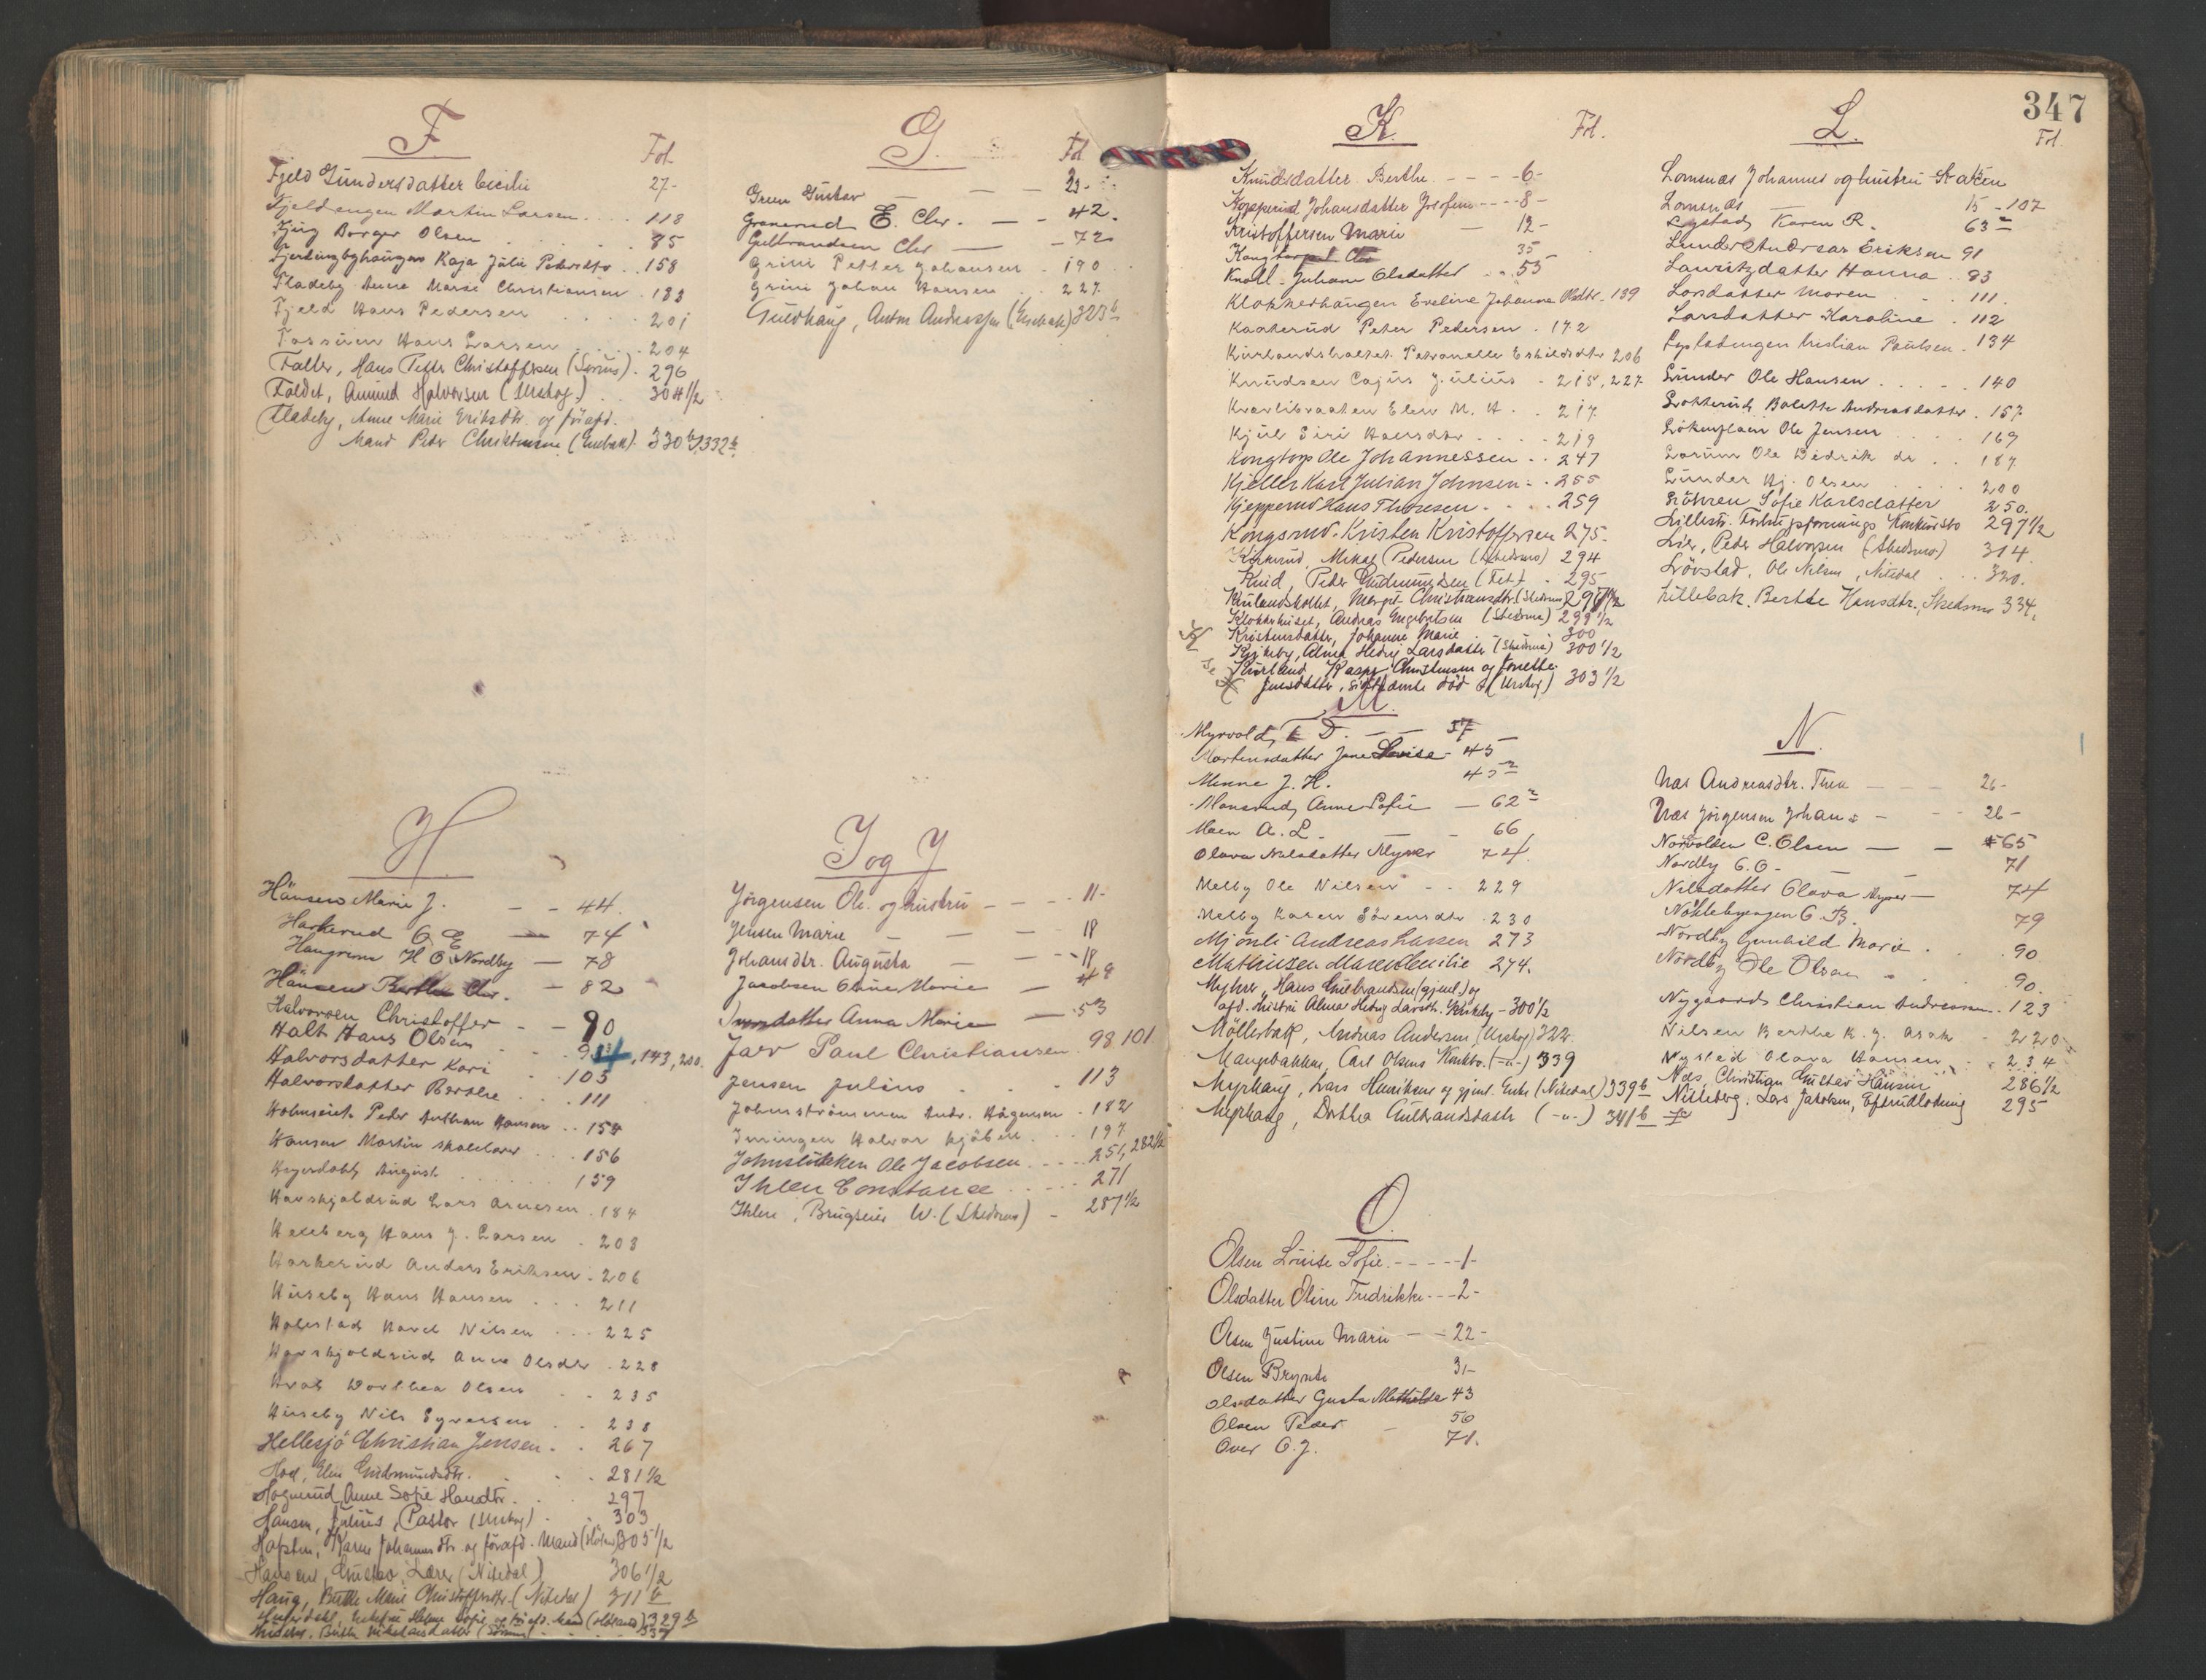 F
Fol.
Fjeld Gundersdatter Cecilie 27-
Fjeldengen Martin Larsen . . . . 118
Borger Olsen . . . 85
Kaja Julie . . 158
Fladeby Anne Marie Christiansen . 183
Fjeld Hans Pedersen . . . . 201
Fossum Hans Larsen . . . . 204
Faller, Hans Peter Christoffersen (Sørum) . 296
Foldet, Amund Halvorsen (Urskog.) . . 304 1/2
Fladeby, Anne Marie Eriksdtr. og föiafd.
Mand Peder Christensen (Enebak) . 330 b, 332 b.
G.
Fol
Green Gustav — — 23-
Granerud E. Chr. — - 42.
Gulbrandsen Chr — - 72
Grini Petter Johansen . 190
Grini Johan Hansen . . 227.
Guldhaug, Anton Andreassen (Enebak) 323 b
H
Hansen Marie J. - - 44.
Harkerud O. E — 74
Haugrim H. O. Nordby — 78
Hansen Berthe Chr. - 82
Halvorsen Christoffer - - 90
Holt Hans Olsen . . , 143, 200.
Halvorsdatter Kari . 105
Halvorsdatter Berthe . . 111
Peder Anthon Hansen . . 154
Hansen Martin . . . 156
August . . . . 159
Hauskjoldrud Lars Arnesen . 184
Hexeberg Hans J. Larsen . 208
Harkerud Anders Eriksen . 206
Huseby Hans Hansen . . . 211
Holestad Karel Nilsen . . . 225
Hauskjoldrud Anne Olsdtr . 228
Hval Dorthea Olsen . . 235
Huseby Nils Syversen . . 238
Hellesjö Christian Jensen . . 267
Hoel, Elen Gudmundsdtr. . . 281 1/2
Hognerud Anne Sofie Hansdtr. . 297
Hansen, Julius, Pastor (Urskog) . . 303
Karen Johannesdtr. og föiafd. Mand 305 1/2
Hansen, Gustav, Lærer (Nitedal) 306 1/2
Haug, Berthe Marie Christoffersdtr. (Nitedal) 311 b
Sofie, og föiafd. Mand 329 b
Berthe 337
I og J
Jörgensen Ole. og hustru - - - - 11-
Jensen Marie - - - 18
Johansdtr. Augusta — — - 18
Jacobsen Marie — 48
Anna Marie — 53
Jarv Paul Christiansen . 98 101
Jensen Julius . . . 113
Johnströmmen Andr. Hagensen . 182
Halvor . . 197
Johnslökken Ole Jacobsen . . . . 251, 282 1/2
Ihlen Constance . . . . . 271
Ihlen, Brugseier W. (Skedsmo) - 287 1/2
347
K
Fol.
Knudsdatter Berthe. - - - - 6-
Kopperud Johansdatter Josefine - - - - 8-
Kristoffersen Marie — 12-
35
Knoll. Juliane Olsdatter - . 55
Klokkerhaugen Eveline Johanne Olsdtr. 139
Kaakerud Peter Pedersen . 172
Kurlandshaltet. Petronelle Eskildsdtr 206
Knudsen Cajus Julius . 215, 227
Kvarlibraaten Elen M. H. . . 217
Kjul Siri Hansdtr . . . . 219
Kongtorp Ole Johannessen . . 247
Kjeller Karl Julian Johnsen . . 255
Kjepperud Hans Thoresen . . . . 259
Kongsrud. Kristen Kristoffersen 275-
Kirkerud, Mikal Pedersen (Skedsmo) 294
Peder Gudmundsen (Fet) . 295
Kurlandshaltet, Margit Christiansdtr. (Skedsmo)
Klokkerhuset, Andreas Engebretsen (Skedsmo) 299 1/2
Kristensdatter, Johanne Marie . . 300
Kirkeby, Alma Hedvig Larsdatter (Skedsmo) 300 1/2
Kurland, Kasper Christensen og Tonette
Jensdatter, sidstnævnte död (Urskog) 303 1/2
L.
Fol.
Lomsnæs Johannes og hustru Karen
Lomsnæs — 15 - 107
Lystad, Karen R. 63 2
Lunder Andreas Eriksen 91
Lauritzdatter Hanna . 83
Larsdatter Maren . . 111.
Larsdatter Karoline . 112
Christian Paulsen . 134
Lunder Ole Hansen . . . . 140
Lokkerud, Bolette Andreasdatter . 157
Ole Jensen . . . . 169
Lorum Ole Didrik dr . . 187.
Lunder Hj. Olsen . . . . 200
Löhren Sofie Karlsdatter 250.
Lillestr. Konkursbo 297 1/2
Lier, Peder Halvorsen (Skedsmo) 314
Lövstad, Ole Nilsen, Nitedal . . . 320.
Lillebak, Berthe Hansdtr., Skedsmo 334.
M.
Myrvold, D. — — 57
Mortensdatter Jane Lovise - 45
Menne J. H. 45 2
Monsrud, Anne Sofie — 62 2
Moen A. L. — - 66
Olava Nilsdatter Myrer 74.
Melby Ole Nilsen . . 229
Melby Karen Sörensdtr . 230
Mjönli Andreas Larsen 273
Mathiesen Maren Emilie 274.
Myhre, Hans Gulbrandsen (gjenl.) og
afd. hustru Alma Hedvig Larsdtr. Kirkeby - 300 1/2
Möllerbak, Andreas Andersen (Urskog) 322.
Carl Olsens Konkbo. (-u-) 339
Myrhaug, Lars Henriksens og gjenl. Enke (Nitedal) 339 b
Myrhaug, Dorthea Gulbrandsdatter (-u-) 341 b
N.
Næs Andreasdtr. Thea — — — 26-
Næs Jörgensen Johan — - - 26-
Norvolden C. Olsen — — 65
Nordby C. O. - 71
Nilsdatter Olava Myrer — 74
79
Nordby Gunhild Marie . 90
Nordby Ole Olsen . . 90.
Nygaard, Christian Andreassen . . 123
Nilsen Berthe K. J. Asak . 220
Nysted Olava Hansen . . . 234
Næs, Christian Gulbr. Hansen 286 1/2
Nitteberg. Lars Jakobsen, Eftrudlodning 295
O
Olsen Lovise Sofie. - - - - - 1-
Olsdatter Oline Fredrikke - - - 2-
Olsen Justine Marie - - 22-
Olsen Brynte 31-
Olsdatter Gusta Mathilde 43
Olsen Peder - 50
Over O. J. 71.